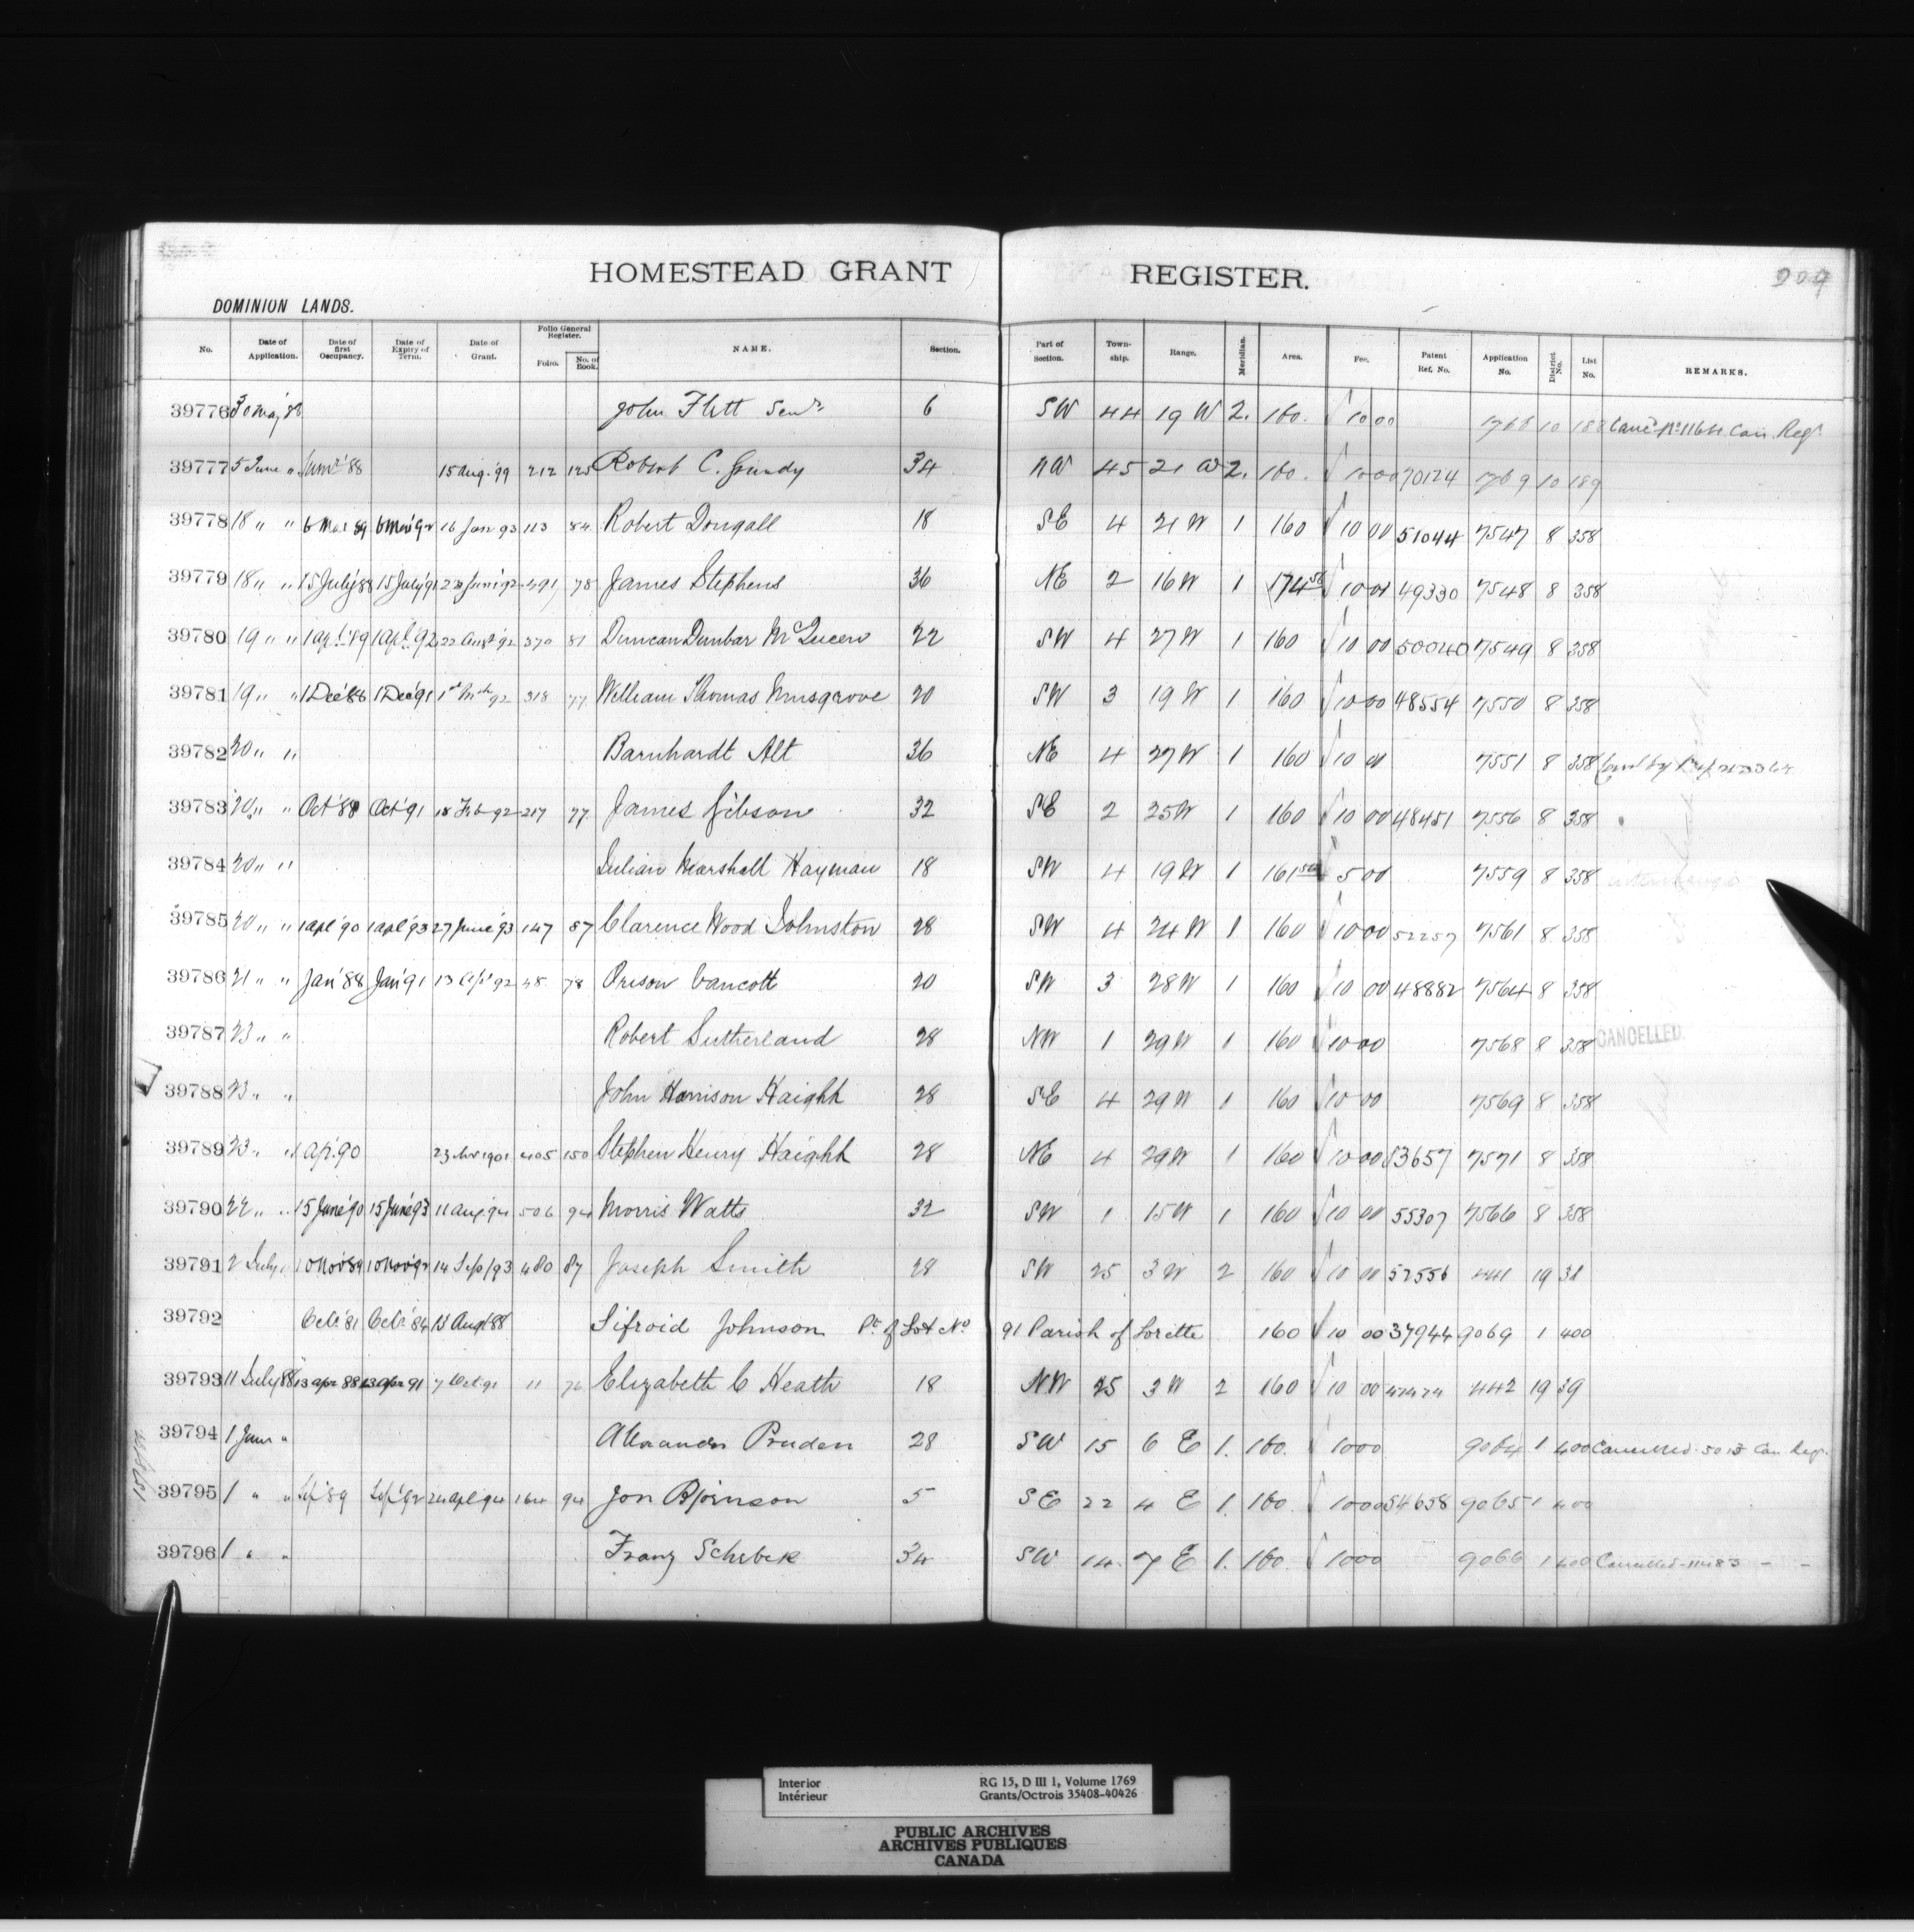 209
HOMESTEAD GRANT REGISTER.
DOMINION LANDS.
No. Date of Application. Date of first Occupancy. Date of Expiry of Term. Date of Grant. Folio General Register. Folio. No. of Book. NAME. Section. Part of Section. Town-ship. Range. Meridian. Area. Fee. Patent Ref. No. Application No. District No. List No. REMARKS.
39776 30 May 88 John Flett Senr. 6 SW 44 19 W 2. 160. 10 00 1768 10 188 Canc'd No 1164 Can. Reg.
39777 5 June " 15 Aug. '99 212 125 Robert C. Grundy 34 NW 45 21 W 2. 160. 10 00 70124 1769 10 189
39778 18 " " 6 Mar 89 6 Mar 92 16 Jan 93 113 84 Robert Dougall 18 SE 4 21 W 1 160 10 00 51044 7547 8 358
39779 18 " " 15 July '88 15 July '91 23 June '92 491 78 James Stephens 36 NE 2 16 W 1 174 56 10 00 49330 7548 8 358
39780 19 " " 1 Apl '89 1 Apl '92 22 Augt '92 370 81 Duncan Dunbar McQueen 22 SW 4 27 W 1 160 10 00 50040 7549 8 358
39781 19 " " 1 Dec '88 1 Dec '91 1st Mch 92 318 77 William Thomas Musgrove 20 SW 3 19 W 1 160 10 00 48554 7550 8 358
39782 20 " " Barnhardt Alt 36 NE 4 27 W 1 160 10 00 7551 8 358
39783 20 " " Oct '88 Oct '91 18 Feb 92 217 77 James Gibson 32 SE 2 25 W 1 160 10 00 48451 7556 8 358
39784 20 " " Julian Marshall Hayman 18 SW 4 19 W 1 161 50 5 00 7559 8 358
39785 20 " " 1 Apl '90 1 Apl '93 27 June '93 147 87 Clarence Wood Johnston 28 SW 4 24 W 1 160 10 00 52257 7561 8 358
39786 21 " " Jan '88 Jan '91 13 Apl 92 48 78 Orison Vancott 20 SW 3 28 W 1 160 10 00 48882 7564 8 358
39787 23 " " Robert Sutherland 28 NW 1 29 W 1 160 10 00 7568 8 358 CANCELLED.
39788 23 " " John Harrison Haight 28 SE 4 29 W 1 160 10 00 7569 8 358
39789 23 " " 1 Ap. 90 23 1901 405 150 Stephen Henry Haight 28 NE 4 29 W 1 160 10 00 83657 7571 8 358
39790 22 " " 15 June '90 15 June '93 11 Aug 94 506 94 Morris Watts 32 SW 1 15 W 1 160 10 00 55307 7566 8 358
39791 2 July " 10 Nov 89 10 Nov 92 14 Sep 93 480 87 Joseph Smith 28 SW 25 3 W 2 160 10 00 52556 441 19 38
39792 Oct. '81 Oct. '84 13 Aug 88 Sifroid Johnson Pt. of Lot No 91 Parish of Lorette 160 10 00 37944 9069 1 400
39793 11 July 88 13 Apr 88 13 Apr 91 7 Oct. 91 11 76 Elizabeth C Heath 18 NW 25 3 W 2 160 10 00 47474 442 19 39
39794 1 June " Alexander Pruden 28 SW 15 6 E 1. 160. 10 00 9064 1 400 Cancelled 5013 Can Reg.
39795 1 " " Sep '89 Sep '92 24 Apl 94 164 94 Jon Bjornson 5 SE 22 4 E 1. 160 10 00 54658 9065 1 400
39796 1 " " Franz Schebek 34 SW 14 7 E 1. 160. 10 00 9066 1 400 Cancelled 11483 - -
Interior RG 15, D III 1, Volume 1769
Intérieur Grants/Octrois 35408-40426
PUBLIC ARCHIVES
ARCHIVES PUBLIQUES
CANADA